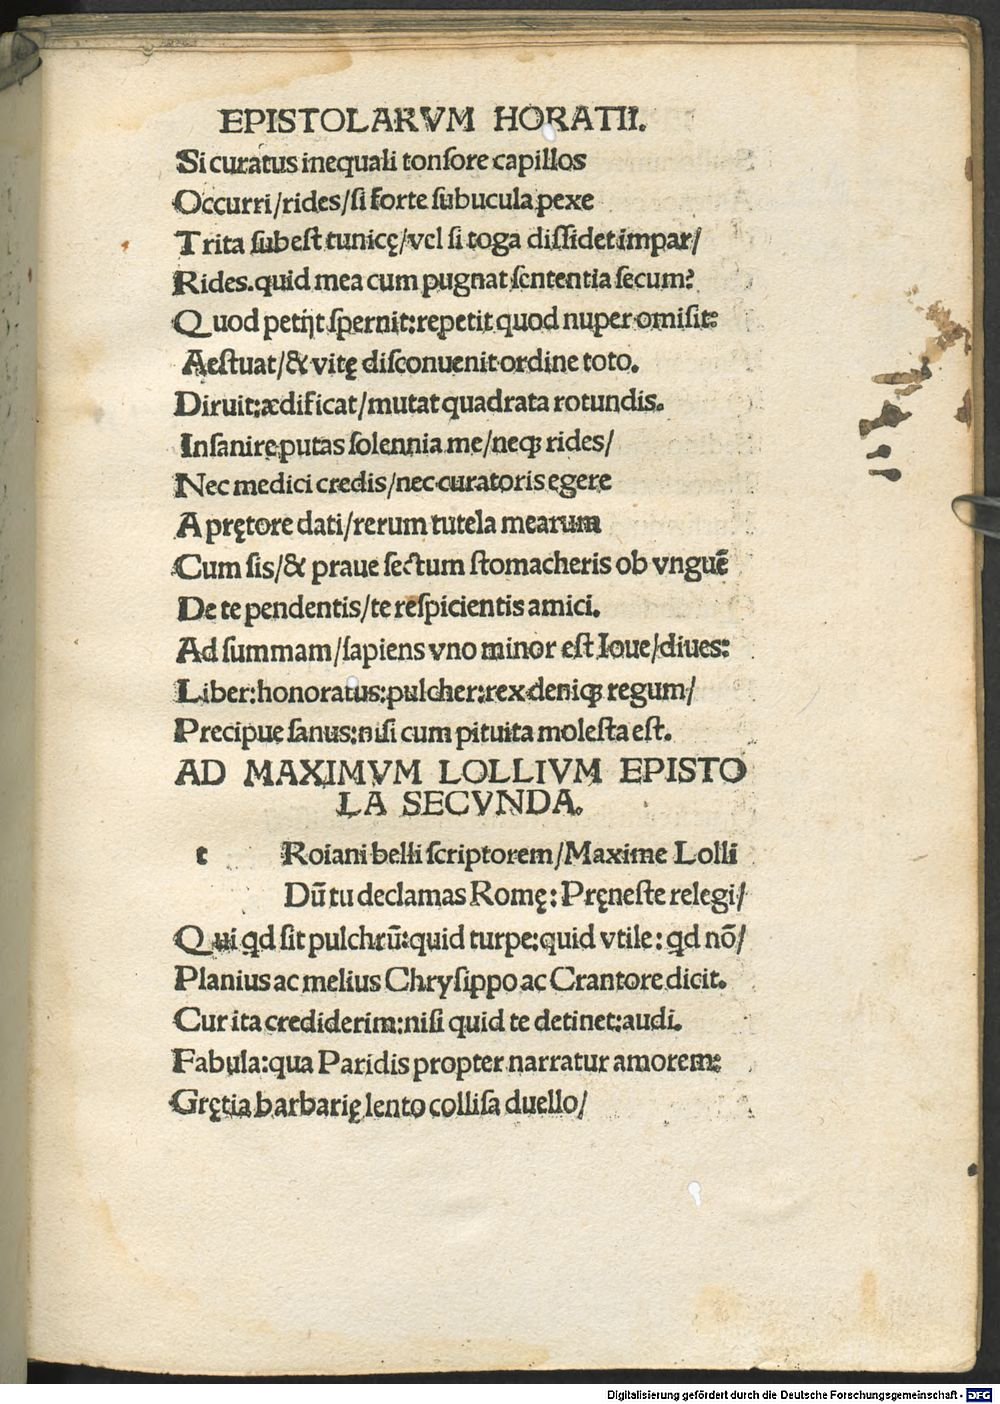 EPISTOLARVM HORATII.
Si curatus inequali tonſore capillos
Occurri/rides/ſi forte ſubucula pexe
Trita ſubeſt tunicę/vel ſi toga diſſidet impar/
Rides.quid mea cum pugnat ſententia ſecum?
Quod petijt ſpernit:repetit quod nuper omiſit:
Aeſtuat/& vitę diſconuenit ordine toto.
Diruit:ædificat/mutat quadrata rotundis.
Inſanire putas ſolennia me/neqꝫ rides/
Nec medici credis/nec curatoris egere
A prętore dati/rerum tutela mearum
Cum ſis/& praue ſectum ſtomacheris ob vnguē
De te pendentis/te reſpicientis amici.
Ad ſummam/ſapiens vno minor eſt Ioue/diues:
Liber:honoratus:pulcher:rex deniqꝫ regum/
Precipue ſanus:niſi cum pituita moleſta eſt.
AD MAXIMVM LOLLIVM EPISTO
LA SECVNDA.
t Roiani belli ſcriptorem/Maxime Lolli
Dū tu declamas Romę: Pręneſte relegi/
Qui qd ſit pulchrū:quid turpe:quid vtile: qd nō/
Planius ac melius Chryſippo ac Crantore dicit.
Cur ita crediderim:niſi quid te detinet:audi.
Fabula:qua Paridis propter narratur amorem:
Grętia barbarię lento colliſa duello/
Digitalisierung gefördert durch die Deutsche Forschungsgemeinschaft - DFG